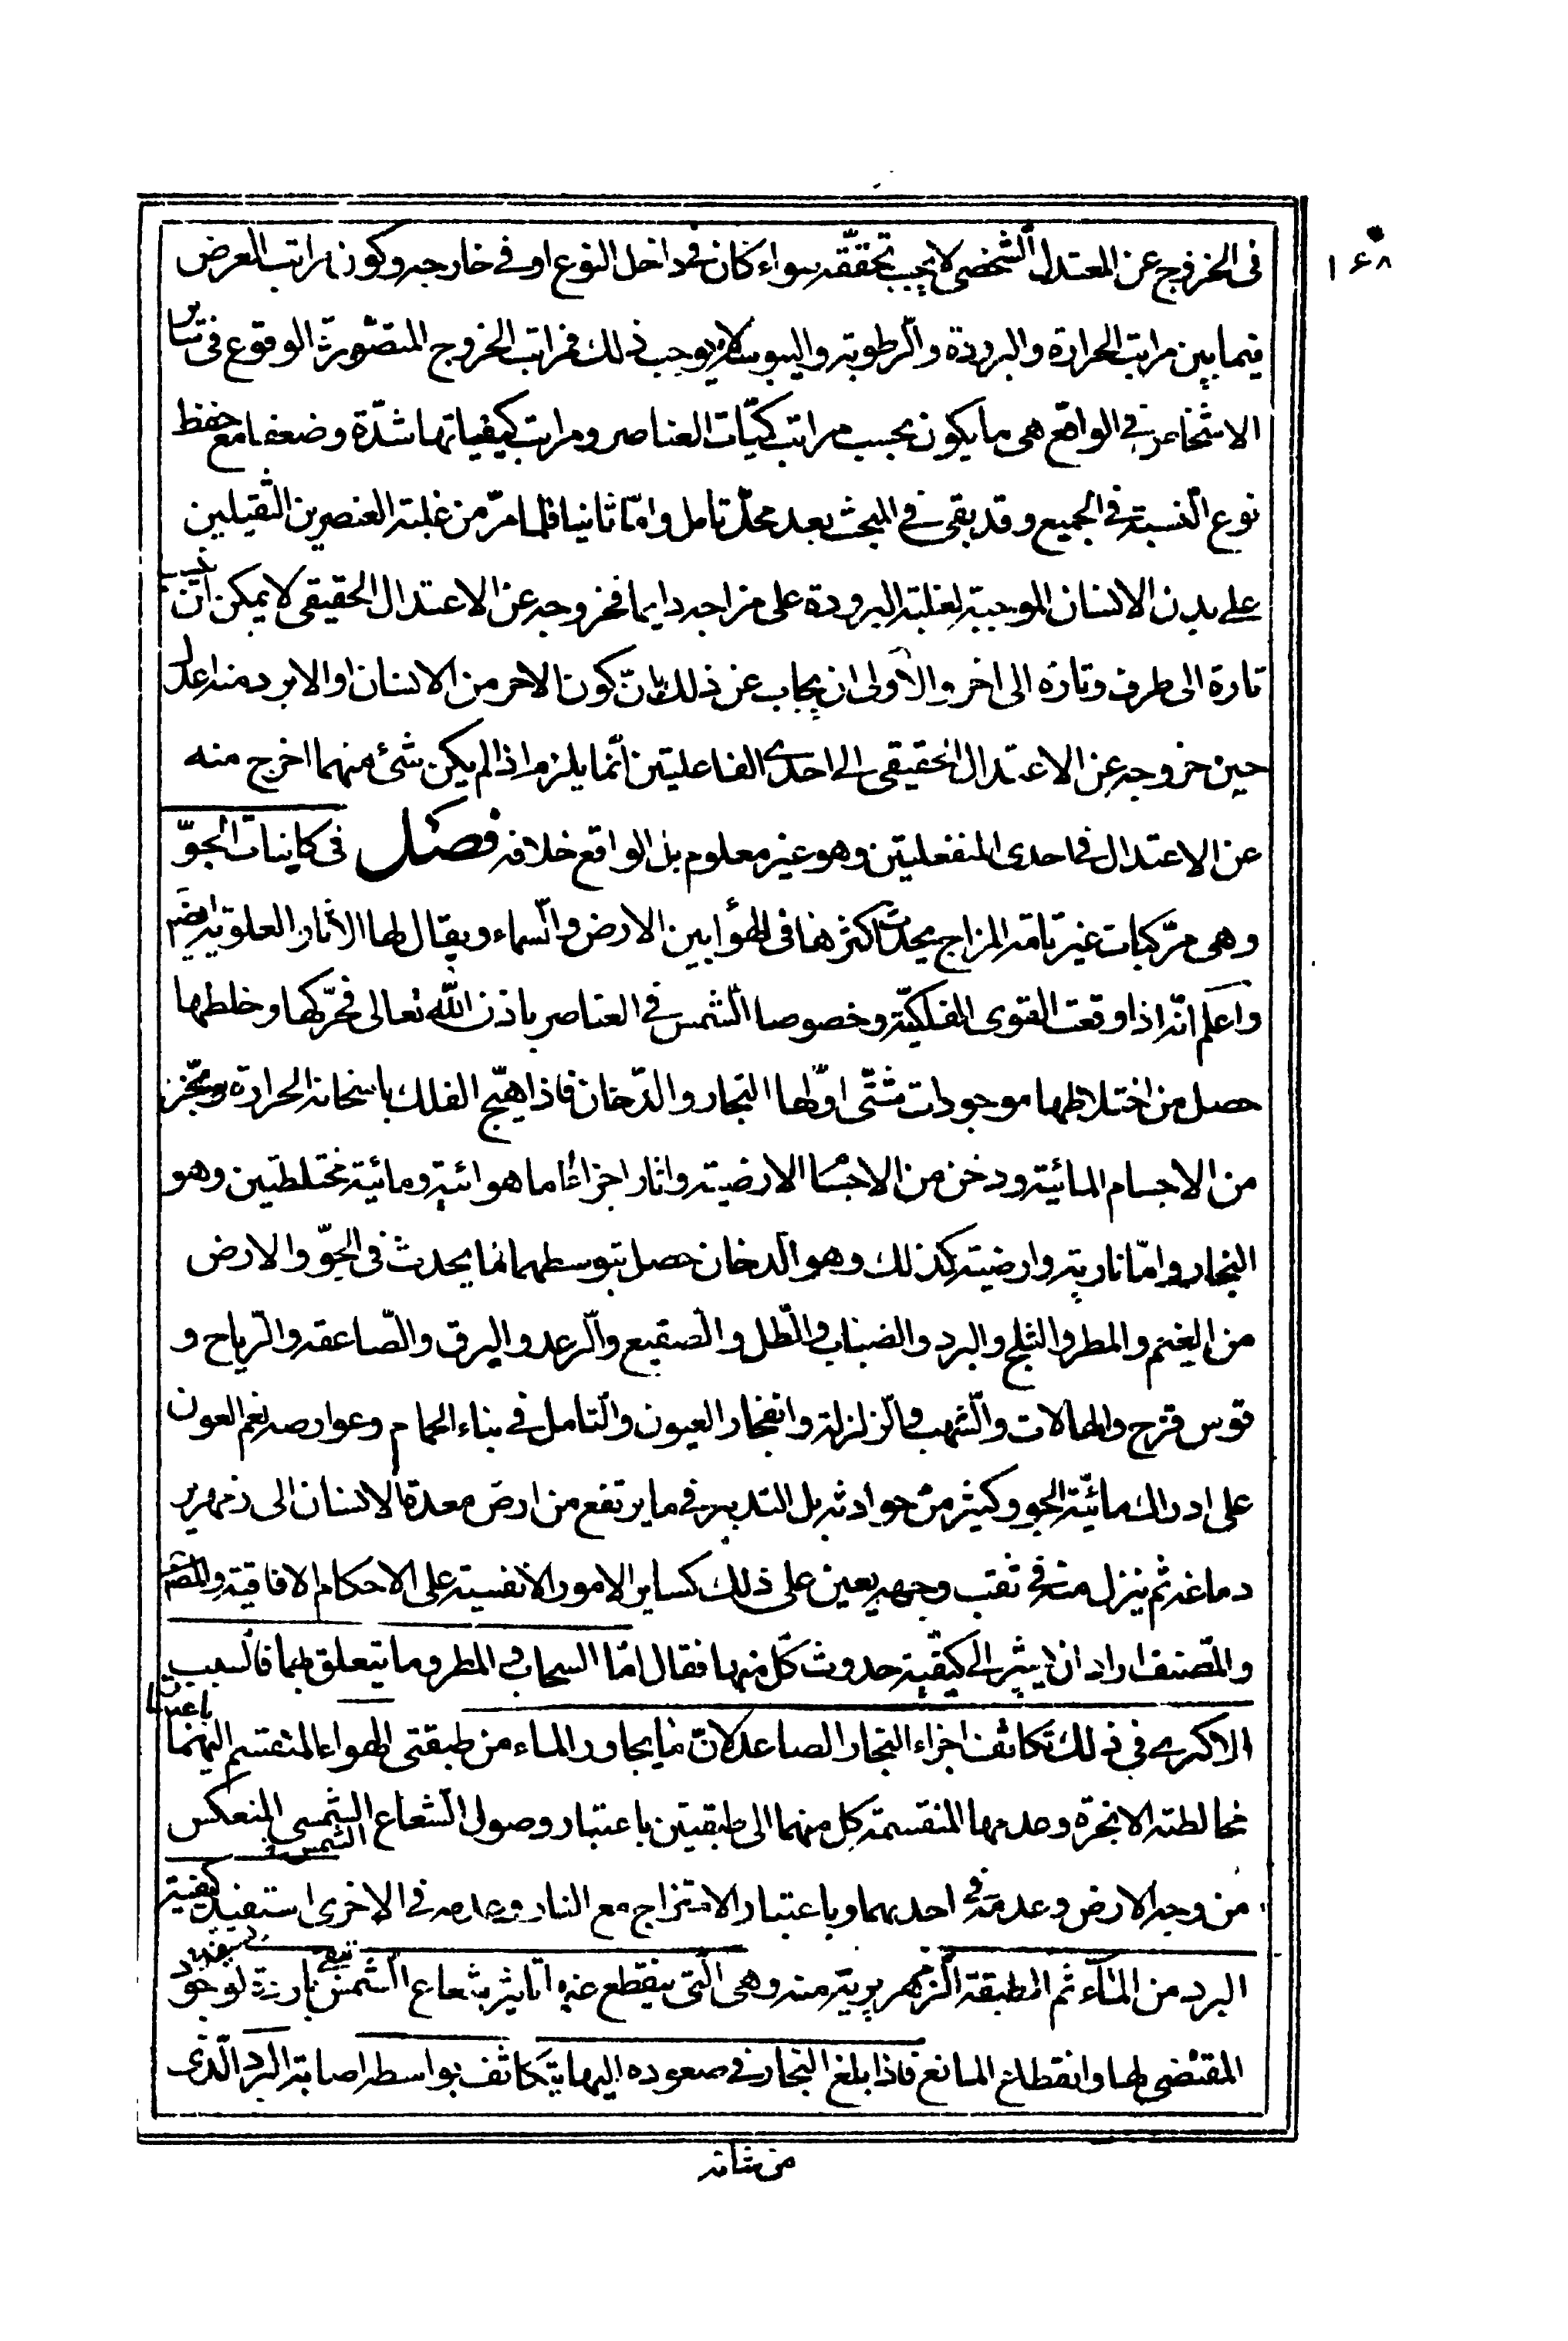 ١٦٨
فى الخروج عن المعتدل الشخصى لا يجب تحقّقه سواء كان فى داخل النوع او فى خارجه وكون مراتب العرض
فيما بين مراتب الحرارة والبرودة والرطوبة واليبوسة لا يوجب ذلك فمراتب الخروج المتصوّرة الوقوع فى ساير
الاشخاص فى الواقع هى ما يكون بحسب مراتب كميّات العناصر ومراتب كيفياتها شدّة وضعفا مع حفظ
نوع النسبة فى الجميع وقد بقى فى المبحث بعد محلّ تامل وامّا ثانيا فلما مرّ من غلبة العنصرين الثقيلين
على بدن الانسان الموجبة لغلبة البرودة على مزاجه دايما فخروجه عن الاعتدال الحقيقى لا يمكن ان
تارة الى طرف وتارة الى اخر والاولى ان يجاب عن ذلك بانّ كون الاحر من الانسان او الابرد منه اعدل
حين خروجه عن الاعتدال الحقيقى الى احدى الفاعليتين انّما يلزم اذا لم يكن شئ منهما اخرج منه
عن الاعتدال فى احدى المنفعليتين وهو غير معلوم بل الواقع خلافه فصل فى كاينات الجوّ
وهى مركبات غير تامة المزاج يحدث اكثرها فى الهوٓا بين الارض والسماء ويقال لها الاثار العلوية ايضا
واعلم انّه اذا وقعت القوى الفلكيّة وخصوصا الشمس فى العناصر باذن اللّه تعالى فحرّكها وخلطها
حصل من اختلاطها موجودات شتّى اوّلها البخار والدّخان فاذا هيّج الفلك باسخانه الحرارة وبخّر
من الاجسام المائية ودخن من الاجسا الارضية واثار اجزائا اما هوائية ومائية مختلطتين وهو
البخار وامّا نارية وارضية كذلك وهو الدخان حصل بتوسطهما ما يحدث فى الجوّ والارض
من الغيم والمطر والثلج والبرد والضباب والطل والصقيع والرعد والبرق والصاعقه والرياح و
قوس قزح والهالات والشهب والزلزلة وانفجار العيون والتامل فى بناء الحمام وعوارضه نعم العون
على ادراك مائيّة الجو وكثير من حوادثه بل التدبر فى ما يرتفع من ارض معدة الانسان الى زمهرير
دماغه ثم ينزل منه فى ثقب وجهه يعين على ذلك كساير الامور الانفسية على الاحكام الافاقية والمص
والمصنف اراد ان يشير الى كيفية حدوث كل منها فقال امّا السحاب والمطر وما يتعلق بهما فالسبب
الاكثرى فى ذلك تكاثف اجزاء البخار الصاعد لانّ ما يجاور الماء من طبقتى الهواء المنقسم اليهما باعتبار
مخالطة الابخرة وعدمها المنقسمة كل منهما الى طبقتين باعتبار وصول الشعاع الشمسى المنعكس
من وجه الارض وعدمه فى احديهما وباعتبار الامتزاج مع النار وعدمه فى الاخرى استفيد كيفية
البرد من المآء ثم الطبقة الزمهريرية منه وهى الّتى ينقطع عنه تاثير شعاع الشمس باردة لوجود
المقتضى لها وانقطاع المانع فاذا بلغ البخار فى صعوده اليها يتكاثف بواسطة اصابة البرد الّذى
من شانه